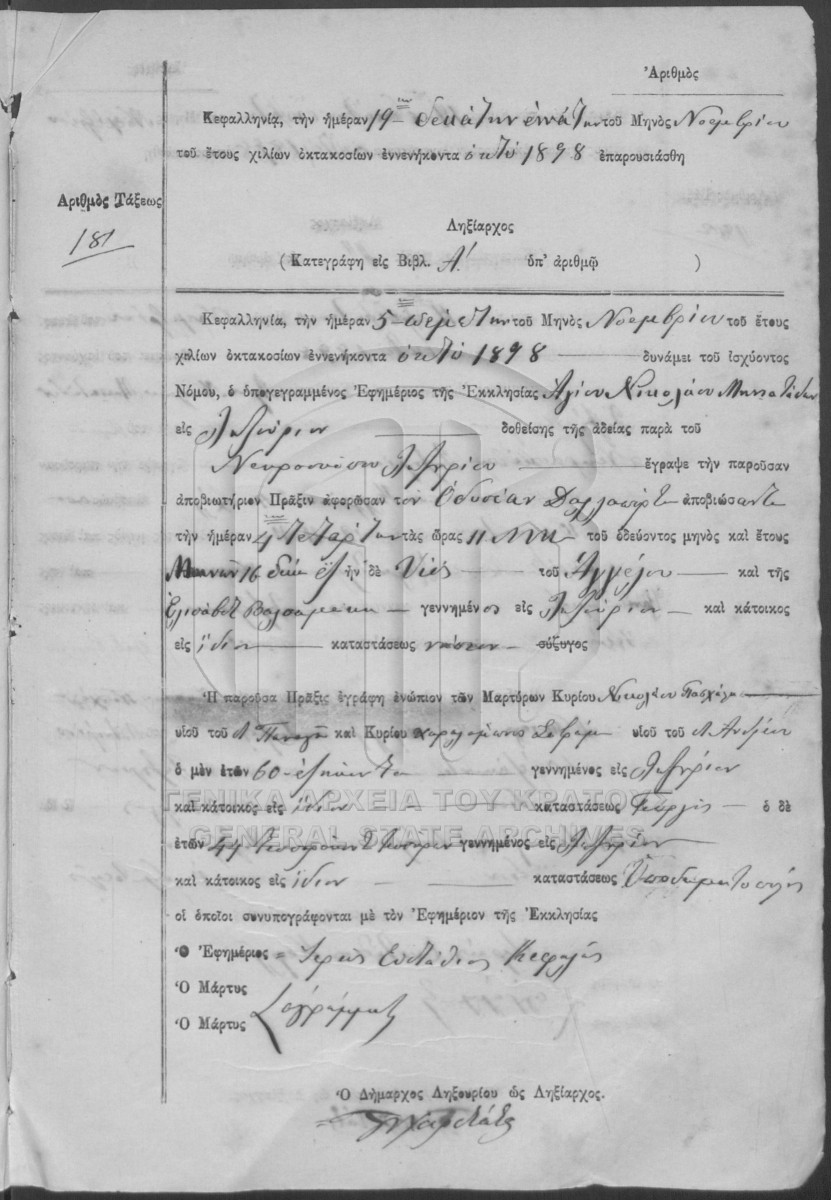 Ἀριθμὸς
Κεφαλληνίᾳ, τὴν ἡμέραν 19 δεκάτην ἐνάτην τοῦ Μηνὸς Νοεμβρίου
τοῦ ἔτους χιλίων ὀκτακοσίων ἐννενήκοντα ὀκτὼ 1898 ἐπαρουσιάσθη
Ἀριθμὸς Τάξεως
181
Ληξίαρχος
(Κατεγράφη εἰς Βιβλ. Α΄. ὑπ' ἀριθμῷ )
Κεφαλληνία, τὴν ἡμέραν 5 πέμπτην τοῦ Μηνὸς Νοεμβρίου τοῦ ἔτους
χιλίων ὀκτακοσίων ἐννενήκοντα ὀκτὼ 1898 δυνάμει τοῦ ἰσχύοντος
Νόμου, ὁ ὑπογεγραμμένος Ἐφημέριος τῆς Ἐκκλησίας Ἁγίου Νικολάου
εἰς Ληξούριον δοθείσης τῆς ἀδείας παρὰ τοῦ
Ληξουρίου ἔγραψε τὴν παροῦσαν
ἀποβιωτήριον Πρᾶξιν ἀφορῶσαν τὸν Ὀδυσέαν ἀποβιώσαντα
τὴν ἡμέραν 4 Τετάρτην τὰς ὥρας 11 τοῦ ὁδεύοντος μηνὸς καὶ ἔτους
16 ἦν δὲ Υἱὸς τοῦ Ἀγγέλου καὶ τῆς
Ἐλισάβετ Βαλσαμάκη γεννημένος εἰς Ληξούριον καὶ κάτοικος
εἰς ἴδιον καταστάσεως νήπιον σύζυγος
Ἡ παροῦσα Πρᾶξις ἐγράφη ἐνώπιον τῶν Μαρτύρων Κυρίου Νικολάου Πασχάλη
υἱοῦ τοῦ καὶ Κυρίου Χαραλάμπους υἱοῦ τοῦ Ἀνδρέου
ὁ μὲν ἐτῶν 60 ἑξήκοντα γεννημένος εἰς Ληξούριον
ΓΕΝΙΚΑ ΑΡΧΕΙΑ ΤΟΥ ΚΡΑΤΟΥΣ
καὶ κάτοικος εἰς ἴδιον καταστάσεως Γεωργὸς ὁ δὲ
GENERAL STATE ARCHIVES
ἐτῶν 44 γεννημένος εἰς Ληξούριον
καὶ κάτοικος εἰς ἴδιον καταστάσεως Ὑποδηματοποιός
οἱ ὁποῖοι συνυπογράφονται μὲ τὸν Ἐφημέριον τῆς Ἐκκλησίας
Ὁ Ἐφημέριος Ἱερεὺς Εὐστάθιος Κεφαλᾶς
Ὁ Μάρτυς
Ὁ Μάρτυς Ἀγράμματοι
Ὁ Δήμαρχος Ληξουρίου ὡς Ληξίαρχος.